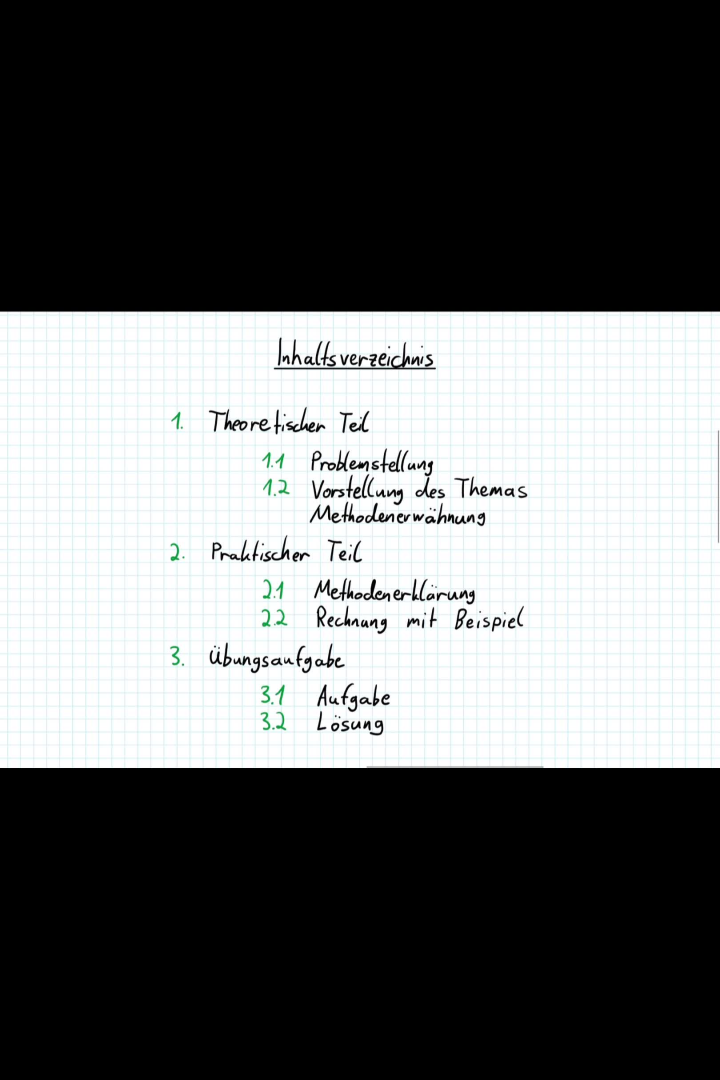 Inhaltsverzeichnis
1. Theoretischer Teil
1.1 Problemstellung
1.2 Vorstellung des Themas
Methodenerwähnung
2. Praktischer Teil
2.1 Methodenerklärung
2.2 Rechnung mit Beispiel
3. Übungsaufgabe
3.1 Aufgabe
3.2 Lösung